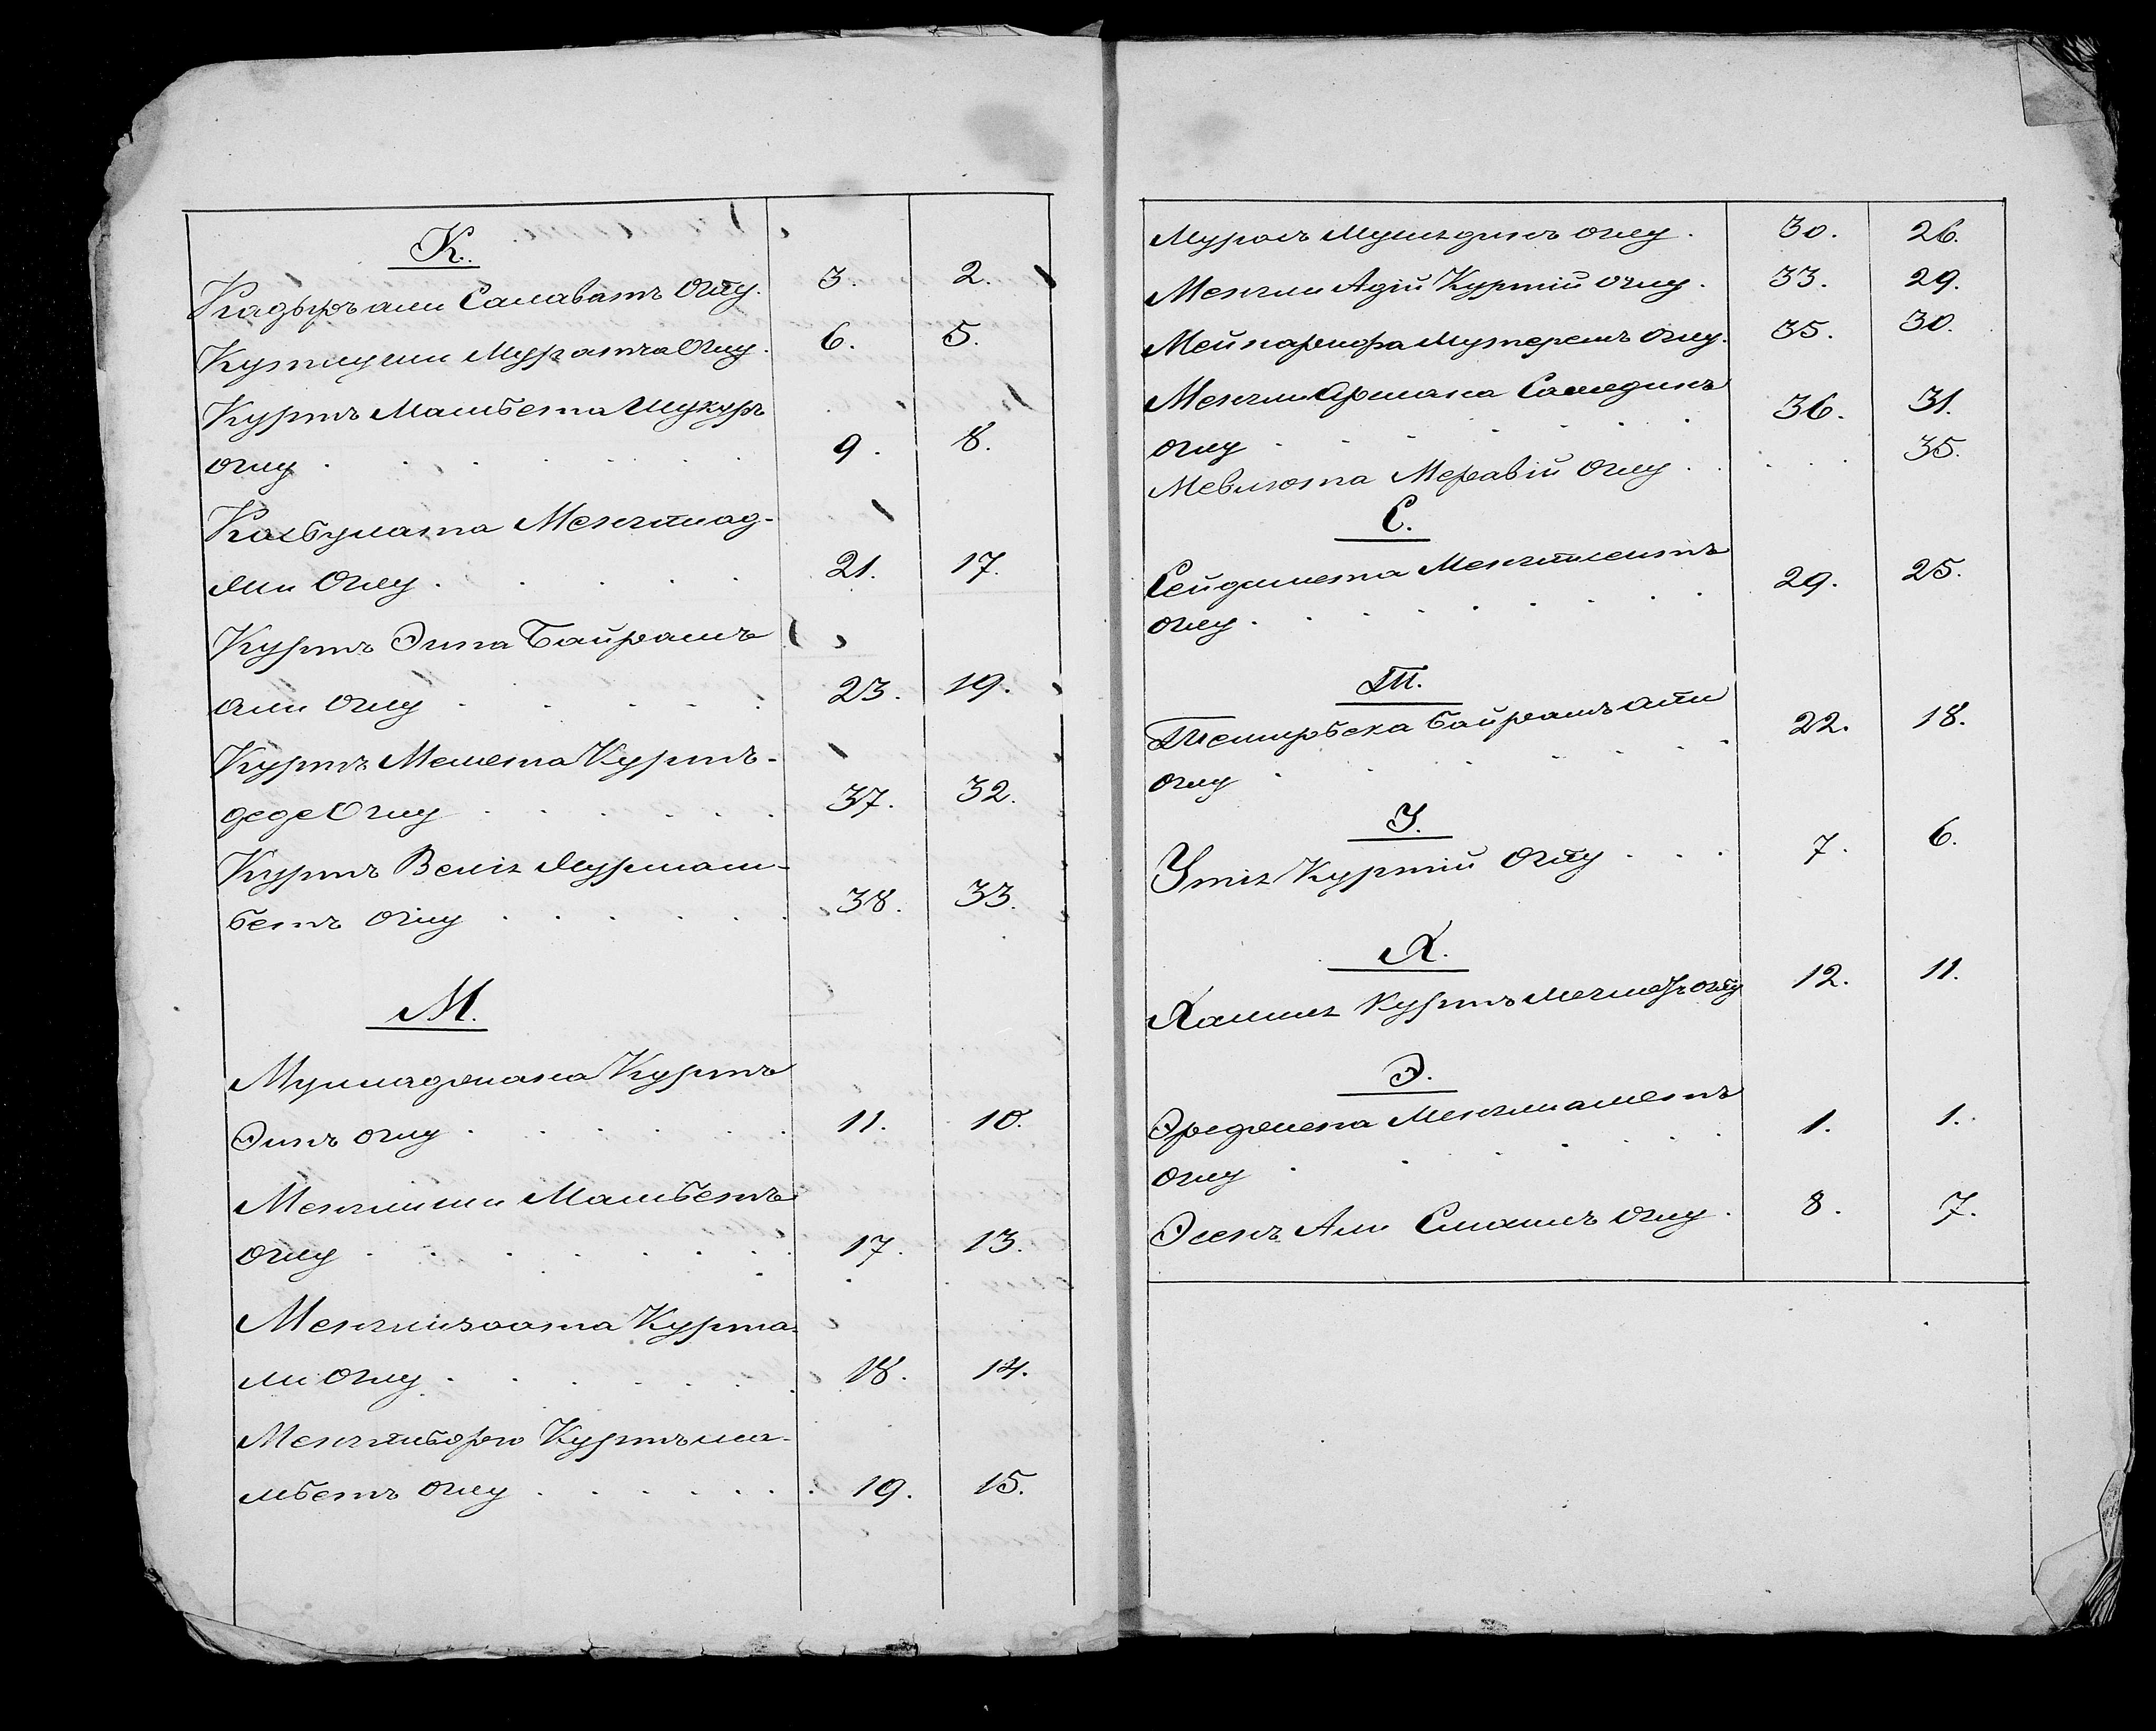 К.
Кадыръ али Салаватъ Оглу. 3. 2.
Кутлуши Муратча Оглу. 6. 5.
Куртъ Мамбета Шукуръ
оглу 9. 8.
Касбулата Менглиад-
жи Оглу 21. 17.
Куртъ Эина Байрамъ
али оглу 23. 19.
Куртъ Мемета Куртъ-
деде Оглу 37. 32.
Куртъ Велія Нурмам-
бетъ оглу 38. 33.
М.
Мулладжана Куртъ
Эинъ оглу 11. 10.
Менглиши Мамбетъ
оглу 17. 13.
Менглизоата Курта-
ли Оглу 18. 14.
Менглибория Куртъ ма-
мбетъ оглу 19. 15.
Муроль оглу 30. 26.
Менгли Аджи Куртій оглу 33. 29.
оглу 35. 30.
Менгли Арслана Самединъ
оглу 36. 31.
Мевлюта Меравій Оглу 35.
С.
Сейдамета Менгламетъ
оглу 29. 25.
Т.
Темирбека Байрамъ али
оглу 22. 18.
У.
Утія Куртій Оглу 7. 6.
Х.
Халиля Куртъ оглу 12. 11.
Э.
Эреджепа Менгламетъ
оглу 1. 1.
Эсенъ Али Смаилъ оглу 8. 7.